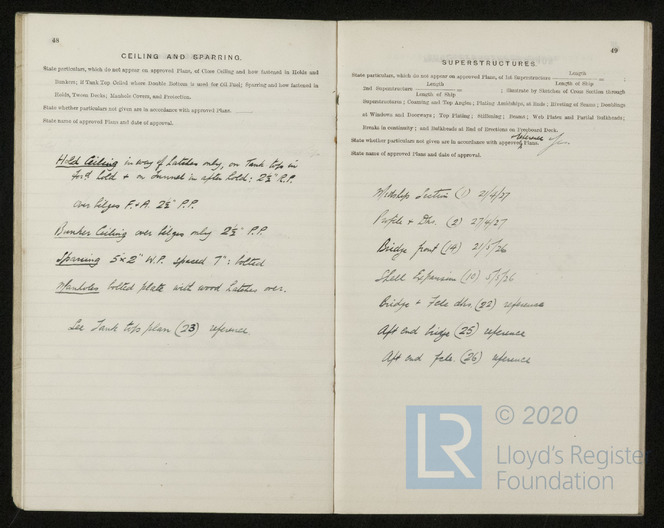 48
CEILING AND SPARRING.
State particulars, which do not appear on approved Plans, of Close Ceiling and how fastened in Holds and
Bunkers; if Tank Top Ceiled where Double Bottom is used for Oil Fuel; Sparring and how fastened in
Holds, Tween Decks; Manhole Covers, and Protection.
State whether particulars not given are in accordance with approved Plans.
State name of approved Plans and date of approval.
Hold Ceiling in way of hatches only, on tank top in
for'd hold & on tunnel in after hold: 2½" P.P.
Over bilges F. & A. 2½" P.P.
Bunker Ceiling over bilges only 2½" P.P.
Sparring 5 x 2" W.P. spaced 7": bolted
Manholes bolted plate with wood hatches over.
See Tank top plan (23) reference
49
SUPERSTRUCTURES
State particulars, which do not appear on approved Plans, of 1st Superstructure Length / Length of Ship = ;
2nd Superstructure Length / Length of Ship ; illustrate by Sketches of Cross Section through
Superstructures; Coaming and Top Angles; Plating Amidships, at Ends; Riveting of Seams; Doublings
at Windows and Doorways; Top Plating; Stiffening; Beams; Web Plates and Partial Bulkheads;
Breaks in continuity; and Bulkheads at End of Erections on Freeboard Deck.
State whether particulars not given are in accordance with approved reference Plans. Yes.
State name of approved Plans and date of approval.
Midship Section (1) 21/4/27
Profile & Dks. (2) 27/4/27
Bridge front (14)
Shell Expansion (10)
Bridge & Fcle dks. (22) reference
Aft end bridge (25) reference
Aft end fcle. (26) reference
LR
© 2020
Lloyd's Register
Foundation